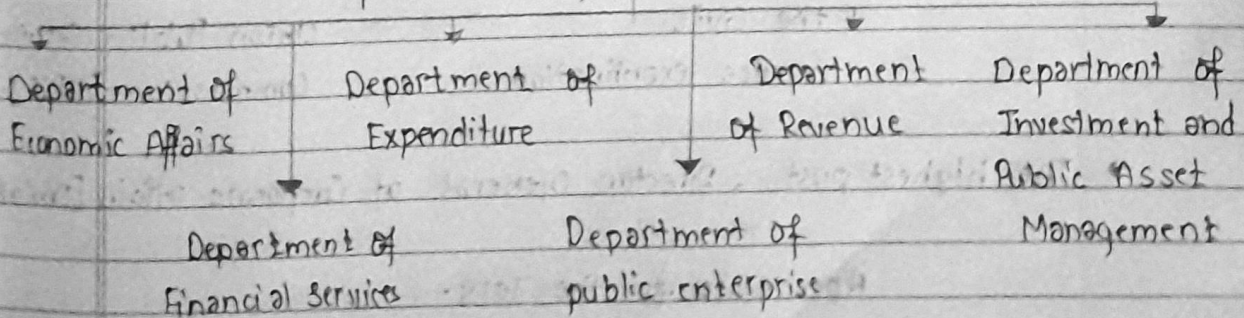 Department of Economic Affairs
Department of Expenditure
Department of Revenue
Department of Investment and Public Asset Management
Department of Financial Services
Department of public enterprise